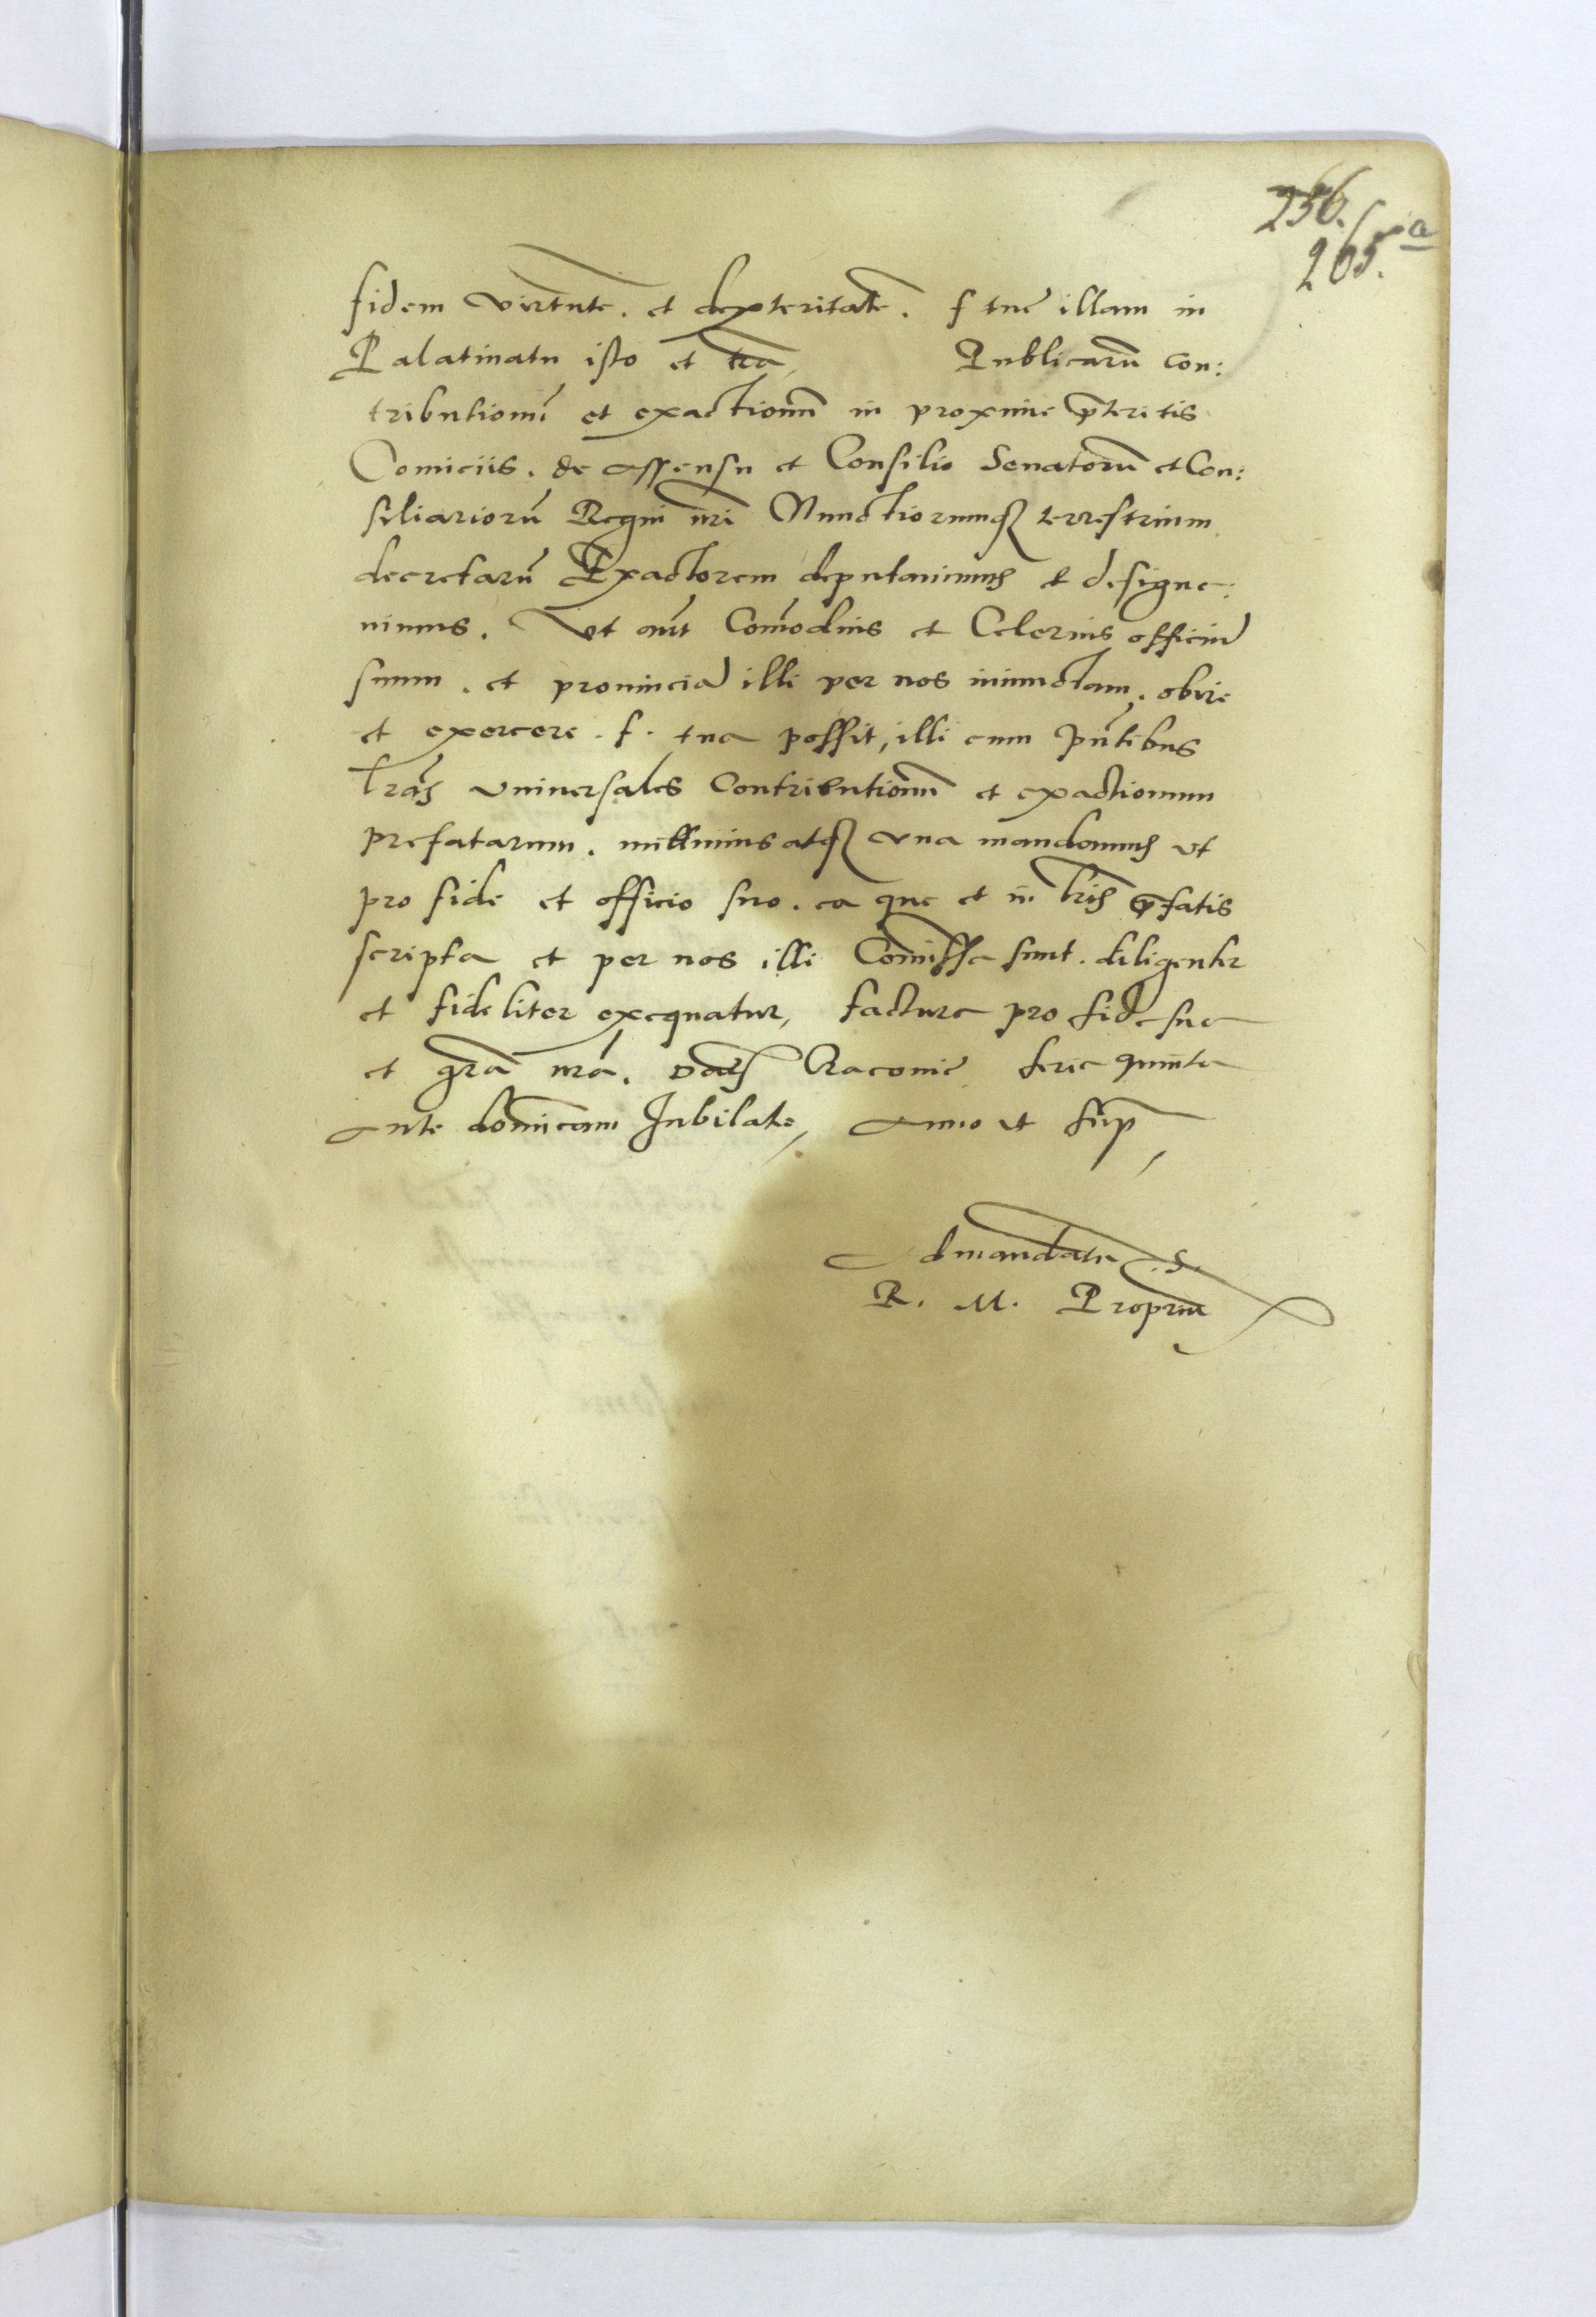 256.
265. a
fidem virtute͂. et dexteritate͂. f tue͂ illam in
Palatinatu isto et tr͂a, Publicaru͂ con:
tributionu͂ et exactionu͂ in proxime p͂teritis
Comiciis. de assensu et Consilio Senatoru͂ et Con:
siliarioru͂ Regni nr͂i Nunctiorumq3 terrestrium
decretaru͂ Exactorem deputauimus et designa:
uimus. Vt aut͂ Com͂odius et Celerius officiu͂
suum. et prouincia͂ illi per nos iniunctam. obire
et exercere. f. tua possit, illi cum pn͂tibus
lr͂as vniuersales Contributionu͂ et exactionum
prefatarum. mittimus atq3 vna mandamus vt
pro fide et officio suo. ea que et in lr͂is p͂fatis
scripta et per nos illi Com͂issa sunt. diligenter
et fideliter exequatur, factura pro fide sua
et gr͂a nr͂a. Dat͂ Cracouie͂ feria quinta
ante dom͂icam Jubilate, Anno vt sup͂
Admandatu͂ .S.
R. M. Propriu͂